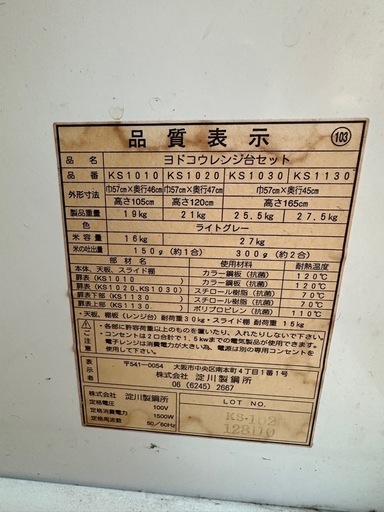 品質表示 103
品名 ヨドコウレンジ台セット
品番 KS1010 KS1020 KS1030 KS1130
外形寸法 巾57cm×奥行46cm 巾57cm×奥行47cm 巾57cm×奥行45cm
高さ105cm 高さ120cm 高さ165cm
製品重量 19kg 21kg 25.5kg 27.5kg
色 ライトグレー
米容量 16kg 27kg
米の吐出量 150g(約1合) 300g(約2合)
部材名 使用材料 耐熱温度
本体、天板、スライド棚 カラー鋼板(抗菌) 120℃
扉表(KS1010) カラー鋼板(抗菌) 120℃
扉表(KS1020,KS1030) スチロール樹脂(抗菌) 70℃
扉表下部(KS1130) スチロール樹脂(抗菌) 70℃
扉表上部(KS1130) ポリプロピレン(抗菌) 110℃
・天板、棚板(レンジ台)耐荷重30kg・スライド棚 耐荷重15kg
・各部に許容荷重以上のものを載せたり、入れたりしないでください。
・コンセントは2口合計で1.5kwまでの電気製品が使用できます。
電子レンジは消費電力が高いため、電源は別の専用コンセントを
使用してください。
〒541-0054 大阪市中央区南本町4丁目1番1号
株式会社 淀川製鋼所
06(6245)2667
株式会社 淀川製鋼所
定格電圧 100V
定格消費電力 1500W
定格周波数 50/60Hz
LOT NO.
KS-102